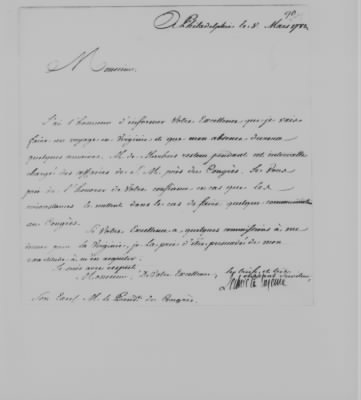 A Philadelphie le 8. Mars 1782
Monsieur,
J'ai l'honneur d'informer Votre Excellence que je vais
faire un voyage en Virginie et que mon absence durera
quelques semaines. M. de Marbois restera pendant cet intervalle
chargé des affaires de S. M. près du Congrès. Je Vous
prie de l'honorer de Votre confiance en cas que les
circonstances le mettent dans le cas de faire quelque communication
au Congrès.
Si Votre Excellence a quelques commissions à me
donner pour la Virginie, je la prie d'être persuadée de mon
exactitude à m'en acquitter.
Je suis avec respect
Monsieur, De Votre Excellence,
le très humble et très
obéissant serviteur
le che de la luzerne
Son Excell. M. le Présidt. du Congrès.